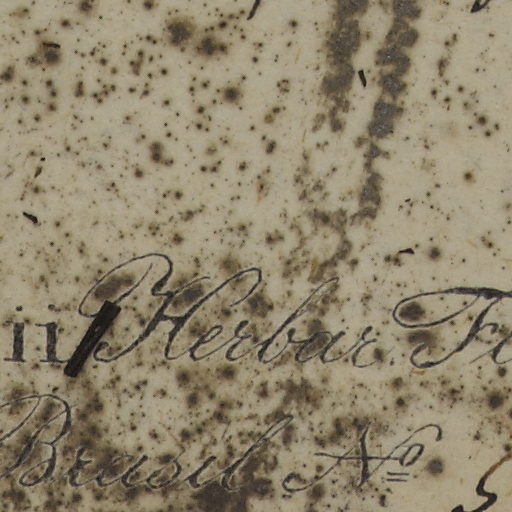 ii Herbar. Fl
Brasil. Nº 5